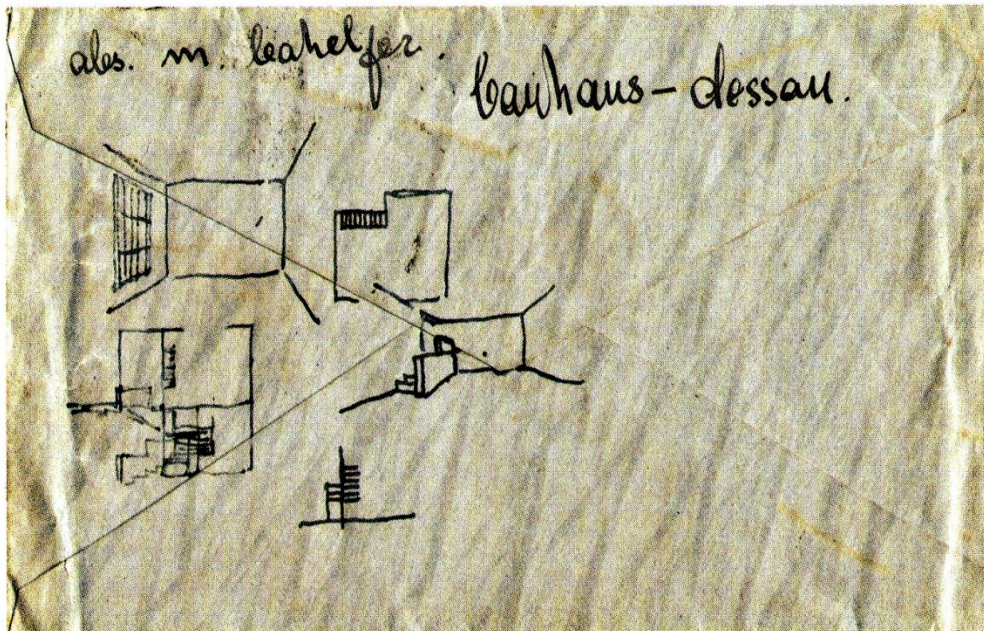 abs. m. bahelfer.
bauhaus-dessau.